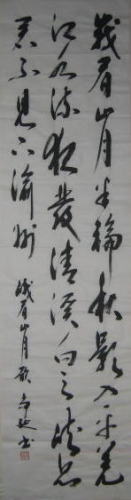 峩眉山月半輪秋影入平羌
江水流夜發清溪向三峽思
君不見下渝州 峨眉山月歌 書